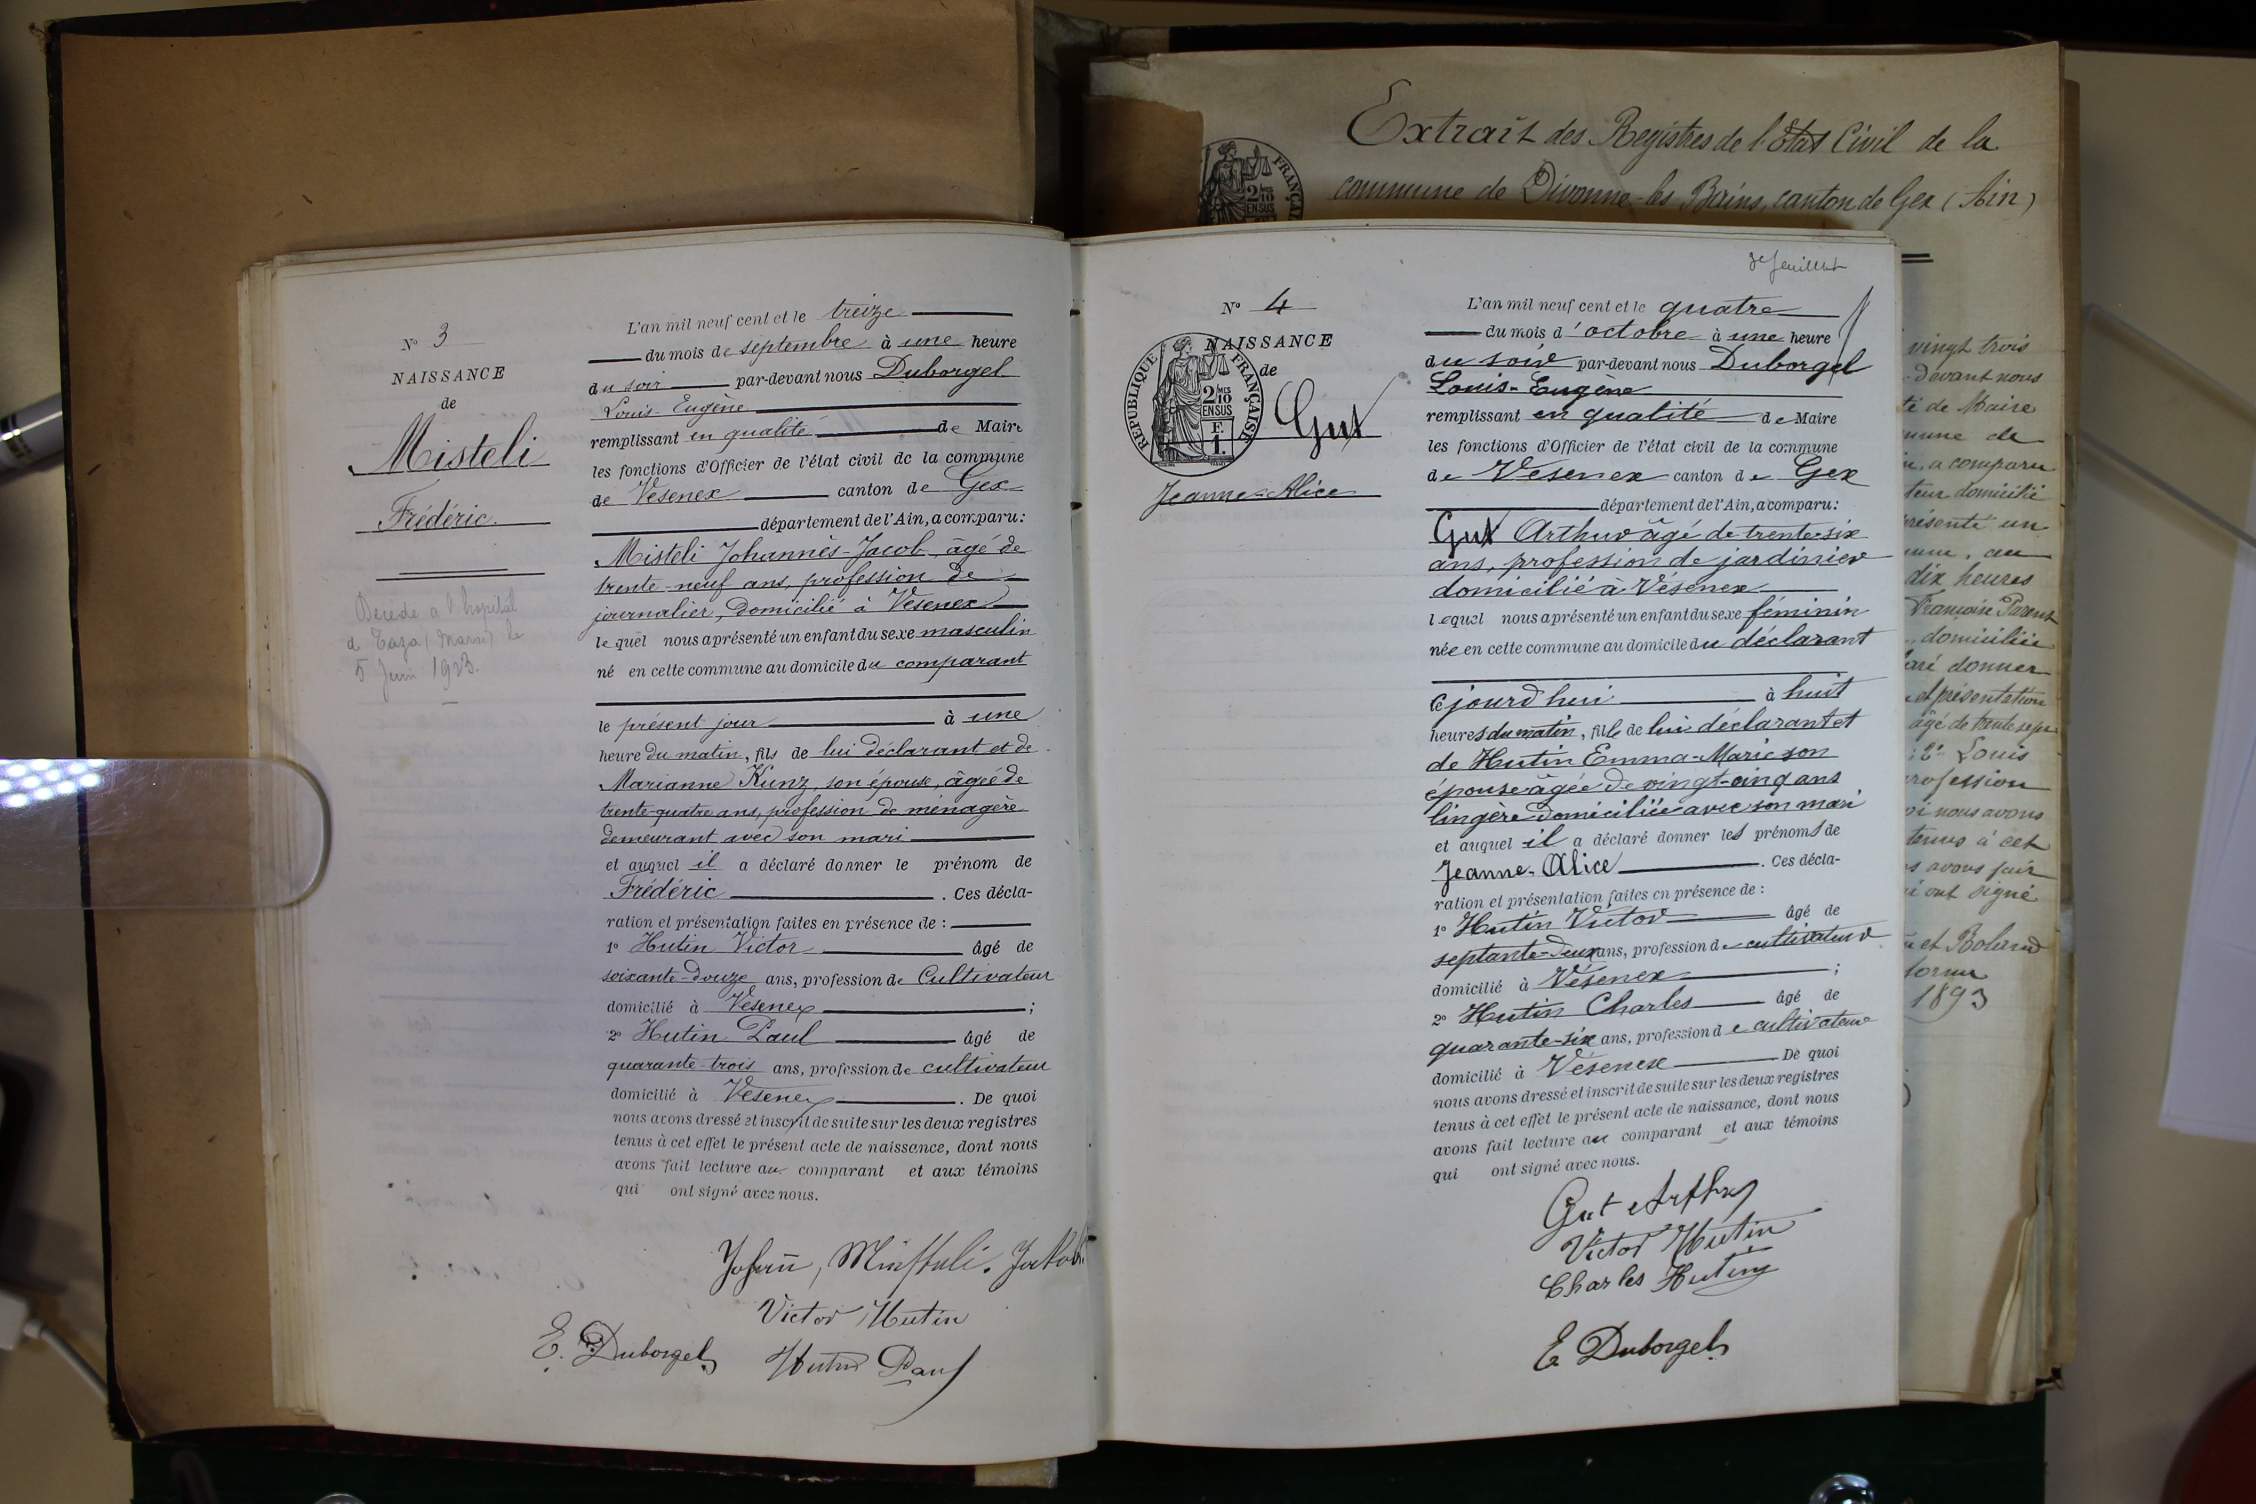 Extrait des Registres de l'Etat Civil de la
commune de Divonne-les Bains, canton de Gex (Ain)
FRANÇAI
2
10
EN SUS
N° 3
NAISSANCE
de
Misteli
Frédéric.
Décédé à l'hopital
de Taza (Maroc) le
5 Juin 1923.
L'an mil neuf cent et le treize
du mois de septembre à une heure
du soir par-devant nous Duborgel
Louis-Eugène
remplissant en qualité de Maire
les fonctions d'Officier de l'état civil de la commune
de Vésenex canton de Gex
département de l'Ain, a comparu:
Misteli Johannès-Jacob, âgé de
trente-neuf ans, profession de
journalier, domicilié à Vésenex
lequel nous a présenté un enfant du sexe masculin
né en cette commune au domicile du comparant
le présent jour à une
heure du matin, fils de lui déclarant et de
Marianne Kunz, son épouse, âgée de
trente-quatre ans, profession de ménagère
demeurant avec son mari
et auquel il a déclaré donner le prénom de
Frédéric . Ces décla-
ration et présentation faites en présence de :
1° Hutin Victor âgé de
soixante-douze ans, profession de Cultivateur
domicilié à Vésenex ;
2° Hutin Paul âgé de
quarante-trois ans, profession de cultivateur
domicilié à Vésenex . De quoi
nous avons dressé et inscrit de suite sur les deux registres
tenus à cet effet le présent acte de naissance, dont nous
avons fait lecture au comparant et aux témoins
qui ont signé avec nous.
Johann, Misteli. Jakob
Victor Hutin
E. Duborgel Hutin Paul
3e feuillet
N° 4
NAISSANCE
de
REPUBLIQUE FRANÇAISE
2 MES
10
EN SUS
F.
1.
Gut
Jeanne-Alice
L'an mil neuf cent et le quatre
du mois d'octobre à une heure
du soir par-devant nous Duborgel
Louis-Eugène
remplissant en qualité de Maire
les fonctions d'Officier de l'état civil de la commune
de Vésenex canton de Gex
département de l'Ain, a comparu:
Gut Arthur âgé de trente-six
ans, profession de jardinier
domicilié à Vésenex
lequel nous a présenté un enfant du sexe féminin
née en cette commune au domicile du déclarant
cejourd'hui à huit
heures du matin, fille de lui déclarant et
de Hutin Emma-Marie son
épouse âgée de vingt-cinq ans
lingère domiciliée avec son mari
et auquel il a déclaré donner les prénoms de
Jeanne-Alice . Ces décla-
ration et présentation faites en présence de :
1° Hutin Victor âgé de
septante-deux ans, profession de cultivateur
domicilié à Vésenex ;
2° Hutin Charles âgé de
quarante-six ans, profession de cultivateur
domicilié à Vésenex De quoi
nous avons dressé et inscrit de suite sur les deux registres
tenus à cet effet le présent acte de naissance, dont nous
avons fait lecture au comparant et aux témoins
qui ont signé avec nous.
Gut Arthur
Victor Hutin
Charles Hutin
E Duborgel
vingt trois
devant nous
de Maire
de
a comparu
domicilié
un
au
dix heures
Françoise Parent
domiciliée
donner
et présentation
âgé de trente sept
2° Louis
profession
nous avons
tenus à cet
avons fait
ont signé
et Roland
1893